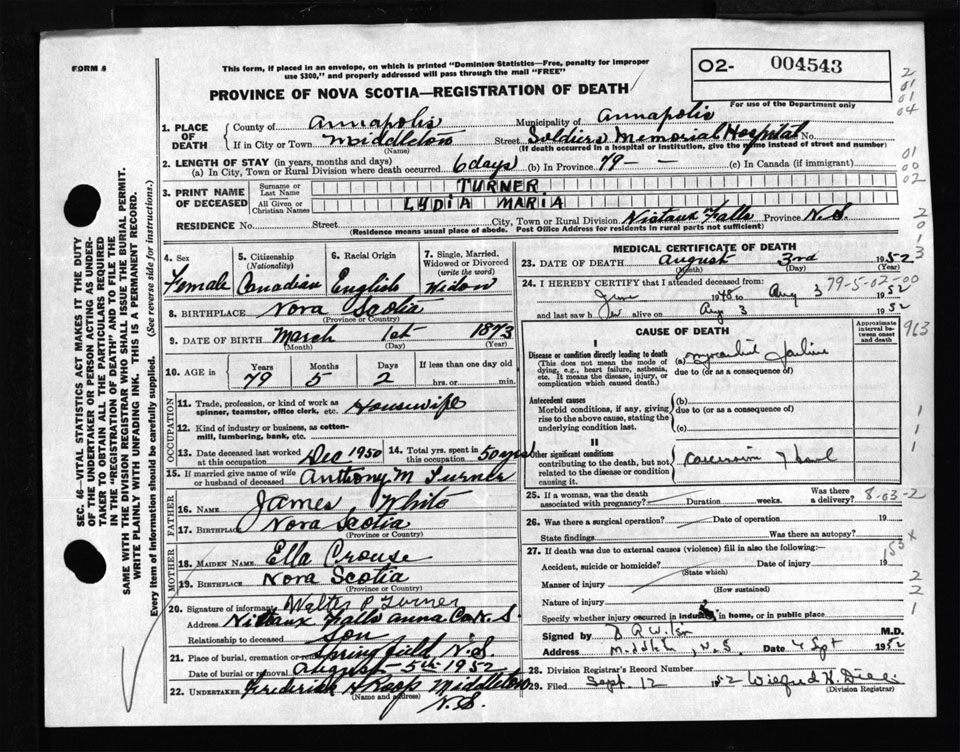 FORM 6
This form, if placed in an envelope, on which is printed "Dominion Statistics—Free, penalty for improper
use $300," and properly addressed will pass through the mail "FREE"
O2- 004543
For use of the Department only
PROVINCE OF NOVA SCOTIA—REGISTRATION OF DEATH
1. PLACE OF DEATH
County of Annapolis Municipality of Annapolis
If in City or Town Middleton Street Soldiers Memorial Hospital No.
(Name) (If death occurred in a hospital or institution, give the name instead of street and number)
2. LENGTH OF STAY (in years, months and days)
(a) In City, Town or Rural Division where death occurred 6 days (b) In Province 79 - - (c) In Canada (if immigrant)
3. PRINT NAME OF DECEASED
Surname or Last Name TURNER
All Given or Christian Names LYDIA MARIA
RESIDENCE No. Street City, Town or Rural Division Nictaux Falls Province N.S.
(Residence means usual place of abode. Post Office Address for residents in rural parts not sufficient)
SEC. 46—VITAL STATISTICS ACT MAKES IT THE DUTY
OF THE UNDERTAKER OR PERSON ACTING AS UNDER-
TAKER TO OBTAIN ALL THE PARTICULARS REQUIRED
IN THE "REGISTRATION OF DEATH" AND TO FILE THE
SAME WITH THE DIVISION REGISTRAR WHO SHALL ISSUE THE BURIAL PERMIT.
WRITE PLAINLY WITH UNFADING INK. THIS IS A PERMANENT RECORD.
Every item of information should be carefully supplied. (See reverse side for instructions.)
4. Sex Female
5. Citizenship (Nationality) Canadian
6. Racial Origin English
7. Single, Married, Widowed or Divorced (write the word) Widow
8. BIRTHPLACE Nova Scotia
(Province or Country)
9. DATE OF BIRTH March 1st 1873
(Month) (Day) (Year)
10. AGE in Years 79 Months 5 Days 2 If less than one day hrs. or min.
OCCUPATION
11. Trade, profession, or kind of work as
spinner, teamster, office clerk, etc. Housewife
12. Kind of industry or business, as cotton-
mill, lumbering, bank, etc.
13. Date deceased last worked at this occupation Dec 1950
14. Total yrs. spent in this occupation 50 yrs
15. If married give name of wife or husband of deceased Anthony M Turner
FATHER
16. NAME James White
17. BIRTHPLACE Nova Scotia
(Province or Country)
MOTHER
18. MAIDEN NAME Ella Crouse
19. BIRTHPLACE Nova Scotia
(Province or Country)
20. Signature of informant Walter P Turner
Address Nictaux Falls Anna Co. N.S.
Relationship to deceased Son
21. Place of burial, cremation or removal Springfield N.S.
Date of burial or removal August 5th 1952
22. UNDERTAKER Frederick H Roop Middleton
(Name and address) N.S.
MEDICAL CERTIFICATE OF DEATH
23. DATE OF DEATH August 3rd 1952
(Month) (Day)
24. I HEREBY CERTIFY that I attended deceased from: 79-5-02-00
June 1948 to Aug 3 1952
and last saw her alive on Aug 3 1952
CAUSE OF DEATH
Approximate interval between onset and death
I
Disease or condition directly leading to death
(This does not mean the mode of
dying, e.g., heart failure, asthenia,
etc. It means the disease, injury, or
complication which caused death.)
(a) myocardial failure
due to (or as a consequence of)
Antecedent causes
Morbid conditions, if any, giving
rise to the above cause, stating the
underlying condition last.
(b)
due to (or as a consequence of)
(c)
II
Other significant conditions
contributing to the death, but not
related to the disease or condition
causing it.
25. If a woman, was the death associated with pregnancy? Duration weeks. Was there a delivery? 8-03-2
26. Was there a surgical operation? Date of operation 19
State findings Was there an autopsy?
27. If death was due to external causes (violence) fill in also the following:—
Accident, suicide or homicide? Date of injury 19
(State which)
Manner of injury
(How sustained)
Nature of injury
Specify whether injury occurred in industry, in home, or in public place
Signed by M.D.
Address Middleton, N.S. Date 4 Sept 1952
28. Division Registrar's Record Number
29. Filed Sept. 12 1952
(Division Registrar)
963